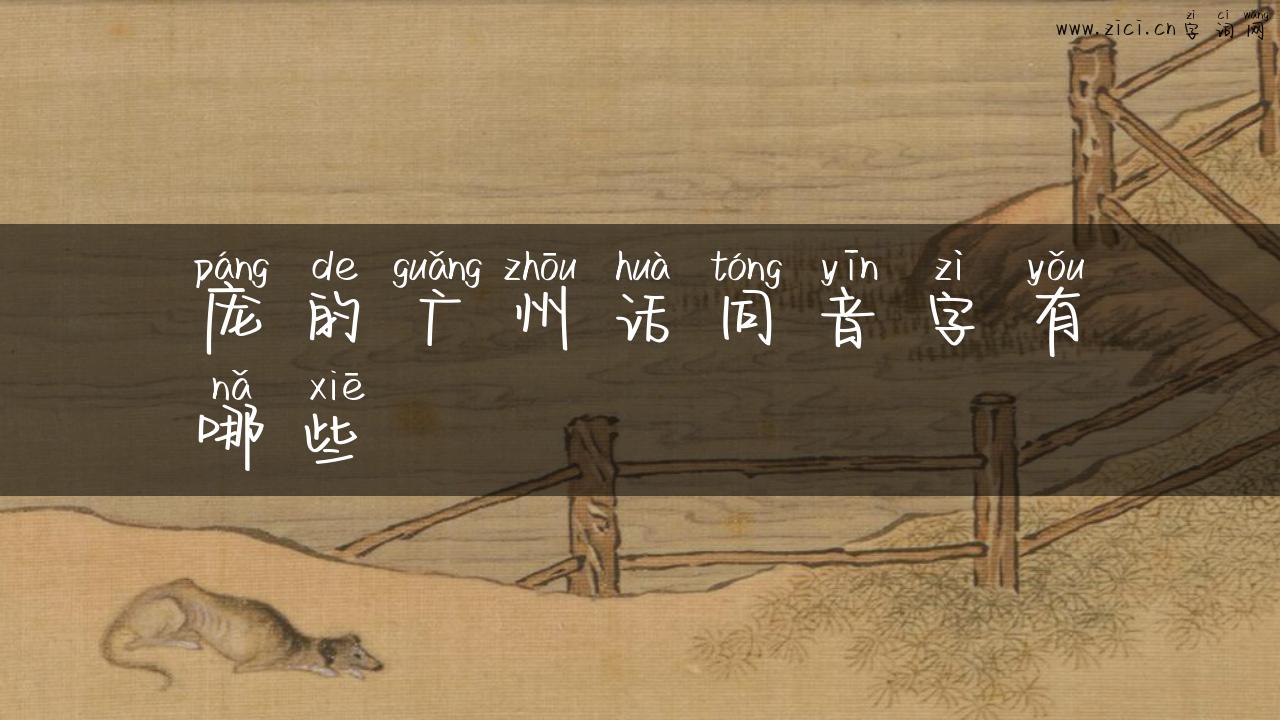 zì cí wǎng
www.zici.cn 字词网
páng de guǎng zhōu huà tóng yīn zì yǒu
庞的广州话同音字有
nǎ xiē
哪些